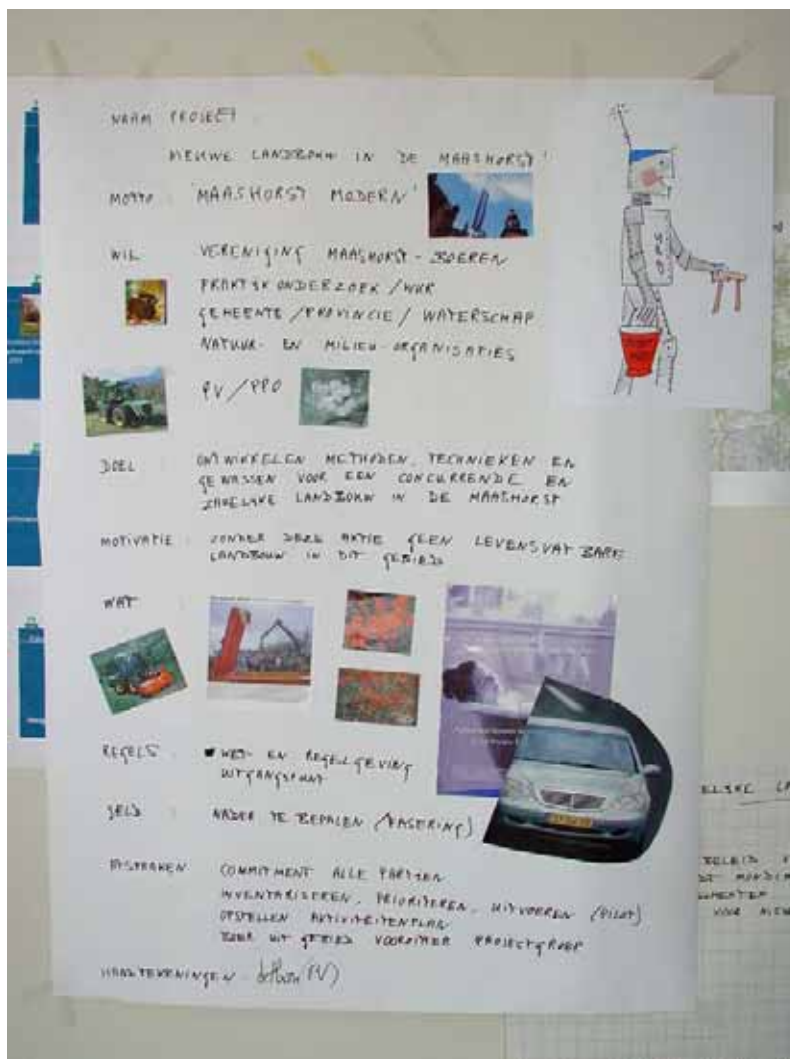 NAAM PROJECT
NIEUWE LANDBOUW IN DE MAASHORST'
MOTTO : 'MAASHORST MODERN'
WIE VERENIGING MAASHORST-BOEREN
PRAKTIJKONDERZOEK/WUR
GEMEENTE/PROVINCIE/WATERSCHAP
NATUUR- EN MILIEU-ORGANISATIES
PV/PPO
GPS
DOEL : ONTWIKKELEN METHODEN, TECHNIEKEN EN
GEWASSEN VOOR EEN CONCURRENDE EN
ZAKELIJKE LANDBOUW IN DE MAASHORST
MOTIVATIE : ZONDER DEZE AKTIE GEEN LEVENSVATBARE
LANDBOUW IN DIT GEBIED
WAT :
REGELS : WET- EN REGELGEVING
UITGANGSPUNT
GELD : NADER TE BEPALEN (FASERING)
AFSPRAKEN COMMITMENT ALLE PARTIJEN
INVENTARISEREN, PRIORITEREN, UITVOEREN (PILOT)
OPSTELLEN AKTIVITEITENPLAN
BOER UIT GEBIED VOORZITTER PROJECTGROEP
HANDTEKENINGEN (PV)
BELEID
VOOR